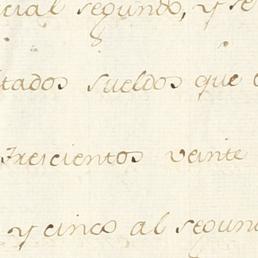 cial segundo, y se
tados sueldos que
Trescientos veinte
y cinco al segun